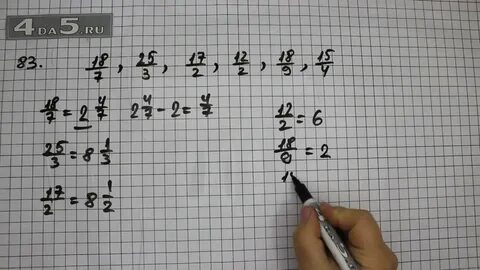 4ДА5.RU
83. 18/7, 25/3, 17/2, 12/2, 18/9, 15/4
18/7 = 2 4/7 2 4/7 - 2 = 4/7
25/3 = 8 1/3
17/2 = 8 1/2
12/2 = 6
18/9 = 2